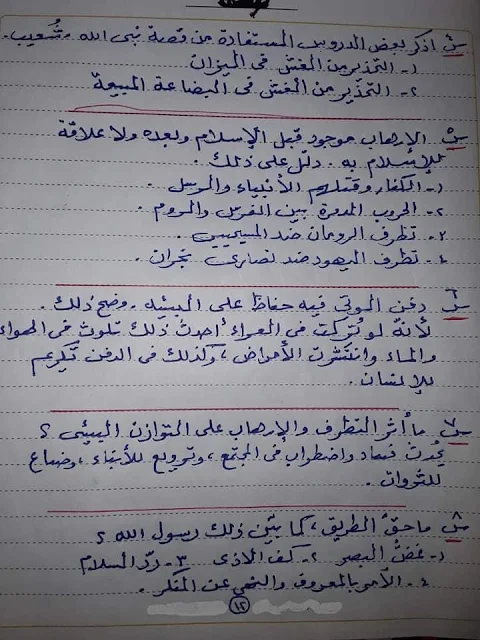 س٥ اذكر بعض الدروس المستفادة من قصة نبى الله شعيب.
١- التحذير من الغش فى الميزان
٢- التحذير من الغش فى البضاعة المبيعة
س٦ الإرهاب موجود قبل الإسلام وبعده ولا علاقة
للإسلام به. دلل على ذلك.
١- الكفار وقتلهم الأنبياء والرسل.
٢- الحروب المدمرة بين الفرس والروم.
٣- تطرف الرومان ضد المسيحيين.
٤- تطرف اليهود ضد نصارى نجران.
دفن الموتى فيه حفاظ على البيئه. وضح ذلك.
لأنه لو تركت فى العراء أحدث ذلك تلوث فى الهواء
والماء وانتشرت الأمراض، وكذلك فى الدفن تكريم
للإنسان.
س٧ ما أثر التطرف والإرهاب على التوازن البيئى؟
يحدث فساد واضطراب فى المجتمع، وترويع للأبناء، وضياع
للثروات.
س٨ ما حق الطريق، كما بيّن ذلك رسول الله؟
١- غضّ البصر ٢- كف الاذى ٣- ردّ السلام
٤- الأمر بالمعروف والنهى عن المنكر.
١٢